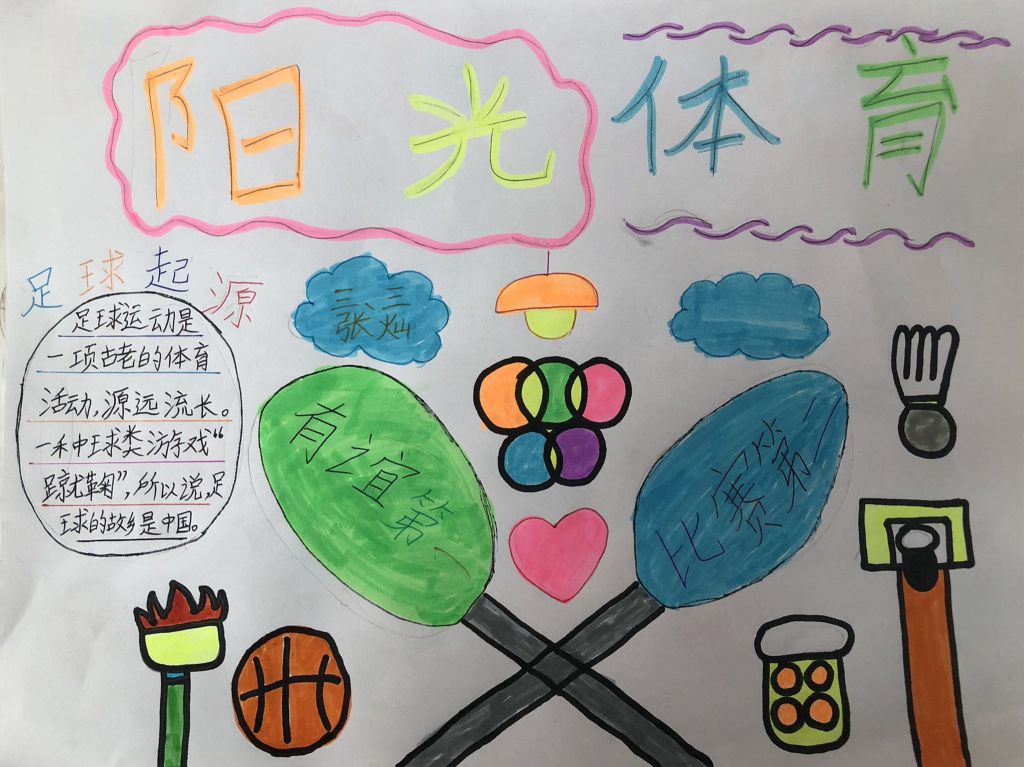 阳光体育
足球起源
足球运动是
一项古老的体育
活动,源远流长。
一种球类游戏“
蹴鞠”,所以说,足
球的故乡是中国。
三、三
张灿
有谊第一
比赛第二